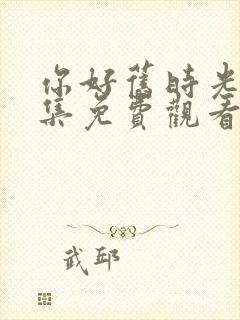 你好舊時光
集免費觀看
武邱